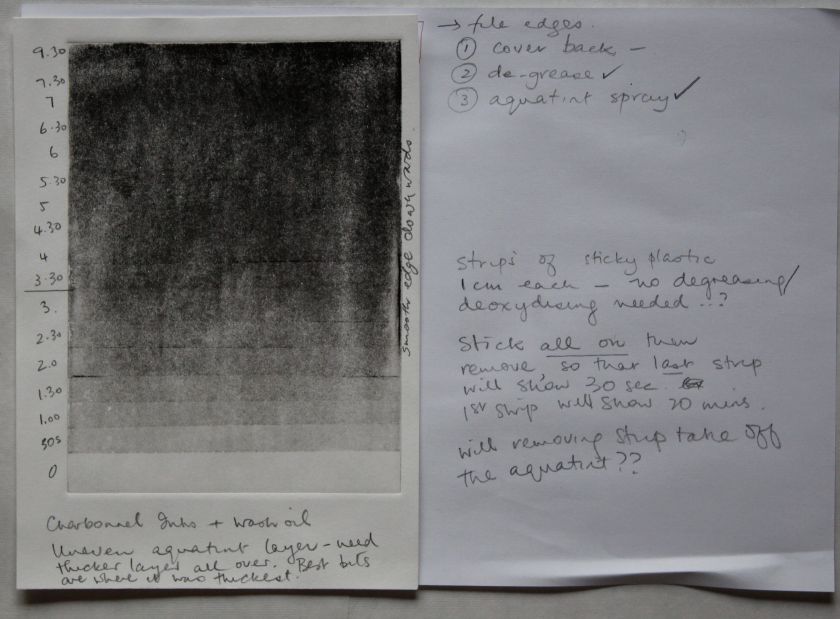 9.30
7.30
7
6.30
6
5.30
5
4.30
4
3.30
3.
2.30
2.0
1.30
1.00
30s
0
smooth edge downwards.
Charbonnel Inks + wash oil
Uneven aquatint layer - need
thicker layer all over. Best bits
are where it was thickest.
→ file edges.
① cover back -
② de-grease ✓
③ aquatint spray ✓
Strips of sticky plastic
1cm each - no degreasing/
deoxydising needed...?
Stick all on then
remove, so that last strip
will show 30 sec
1st strip will show 20 mins.
will removing strip take off
the aquatint??